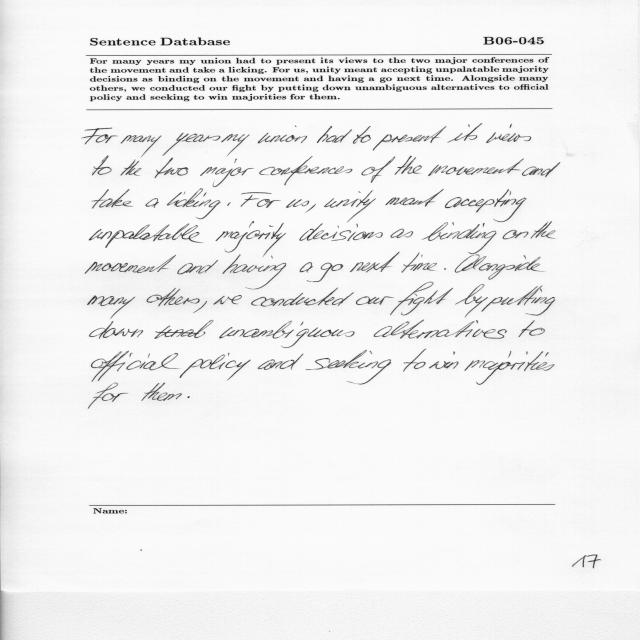 Sentence Database B06-045
For many years my union had to present its views to the two major conferences of
the movement and take a licking. For us, unity meant accepting unpalatable majority
decisions as binding on the movement and having a go next time. Alongside many
others, we conducted our fight by putting down unambiguous alternatives to official
policy and seeking to win majorities for them.
For many years my union had to present its views
to the two major conferences of the movement and
take a licking. For us, unity meant accepting
unpalatable majority decisions as binding on the
movement and having a go next time. Alongside
many others, we conducted our fight by putting
down unambiguous alternatives to
official policy and seeking to win majorities
for them.
Name:
17